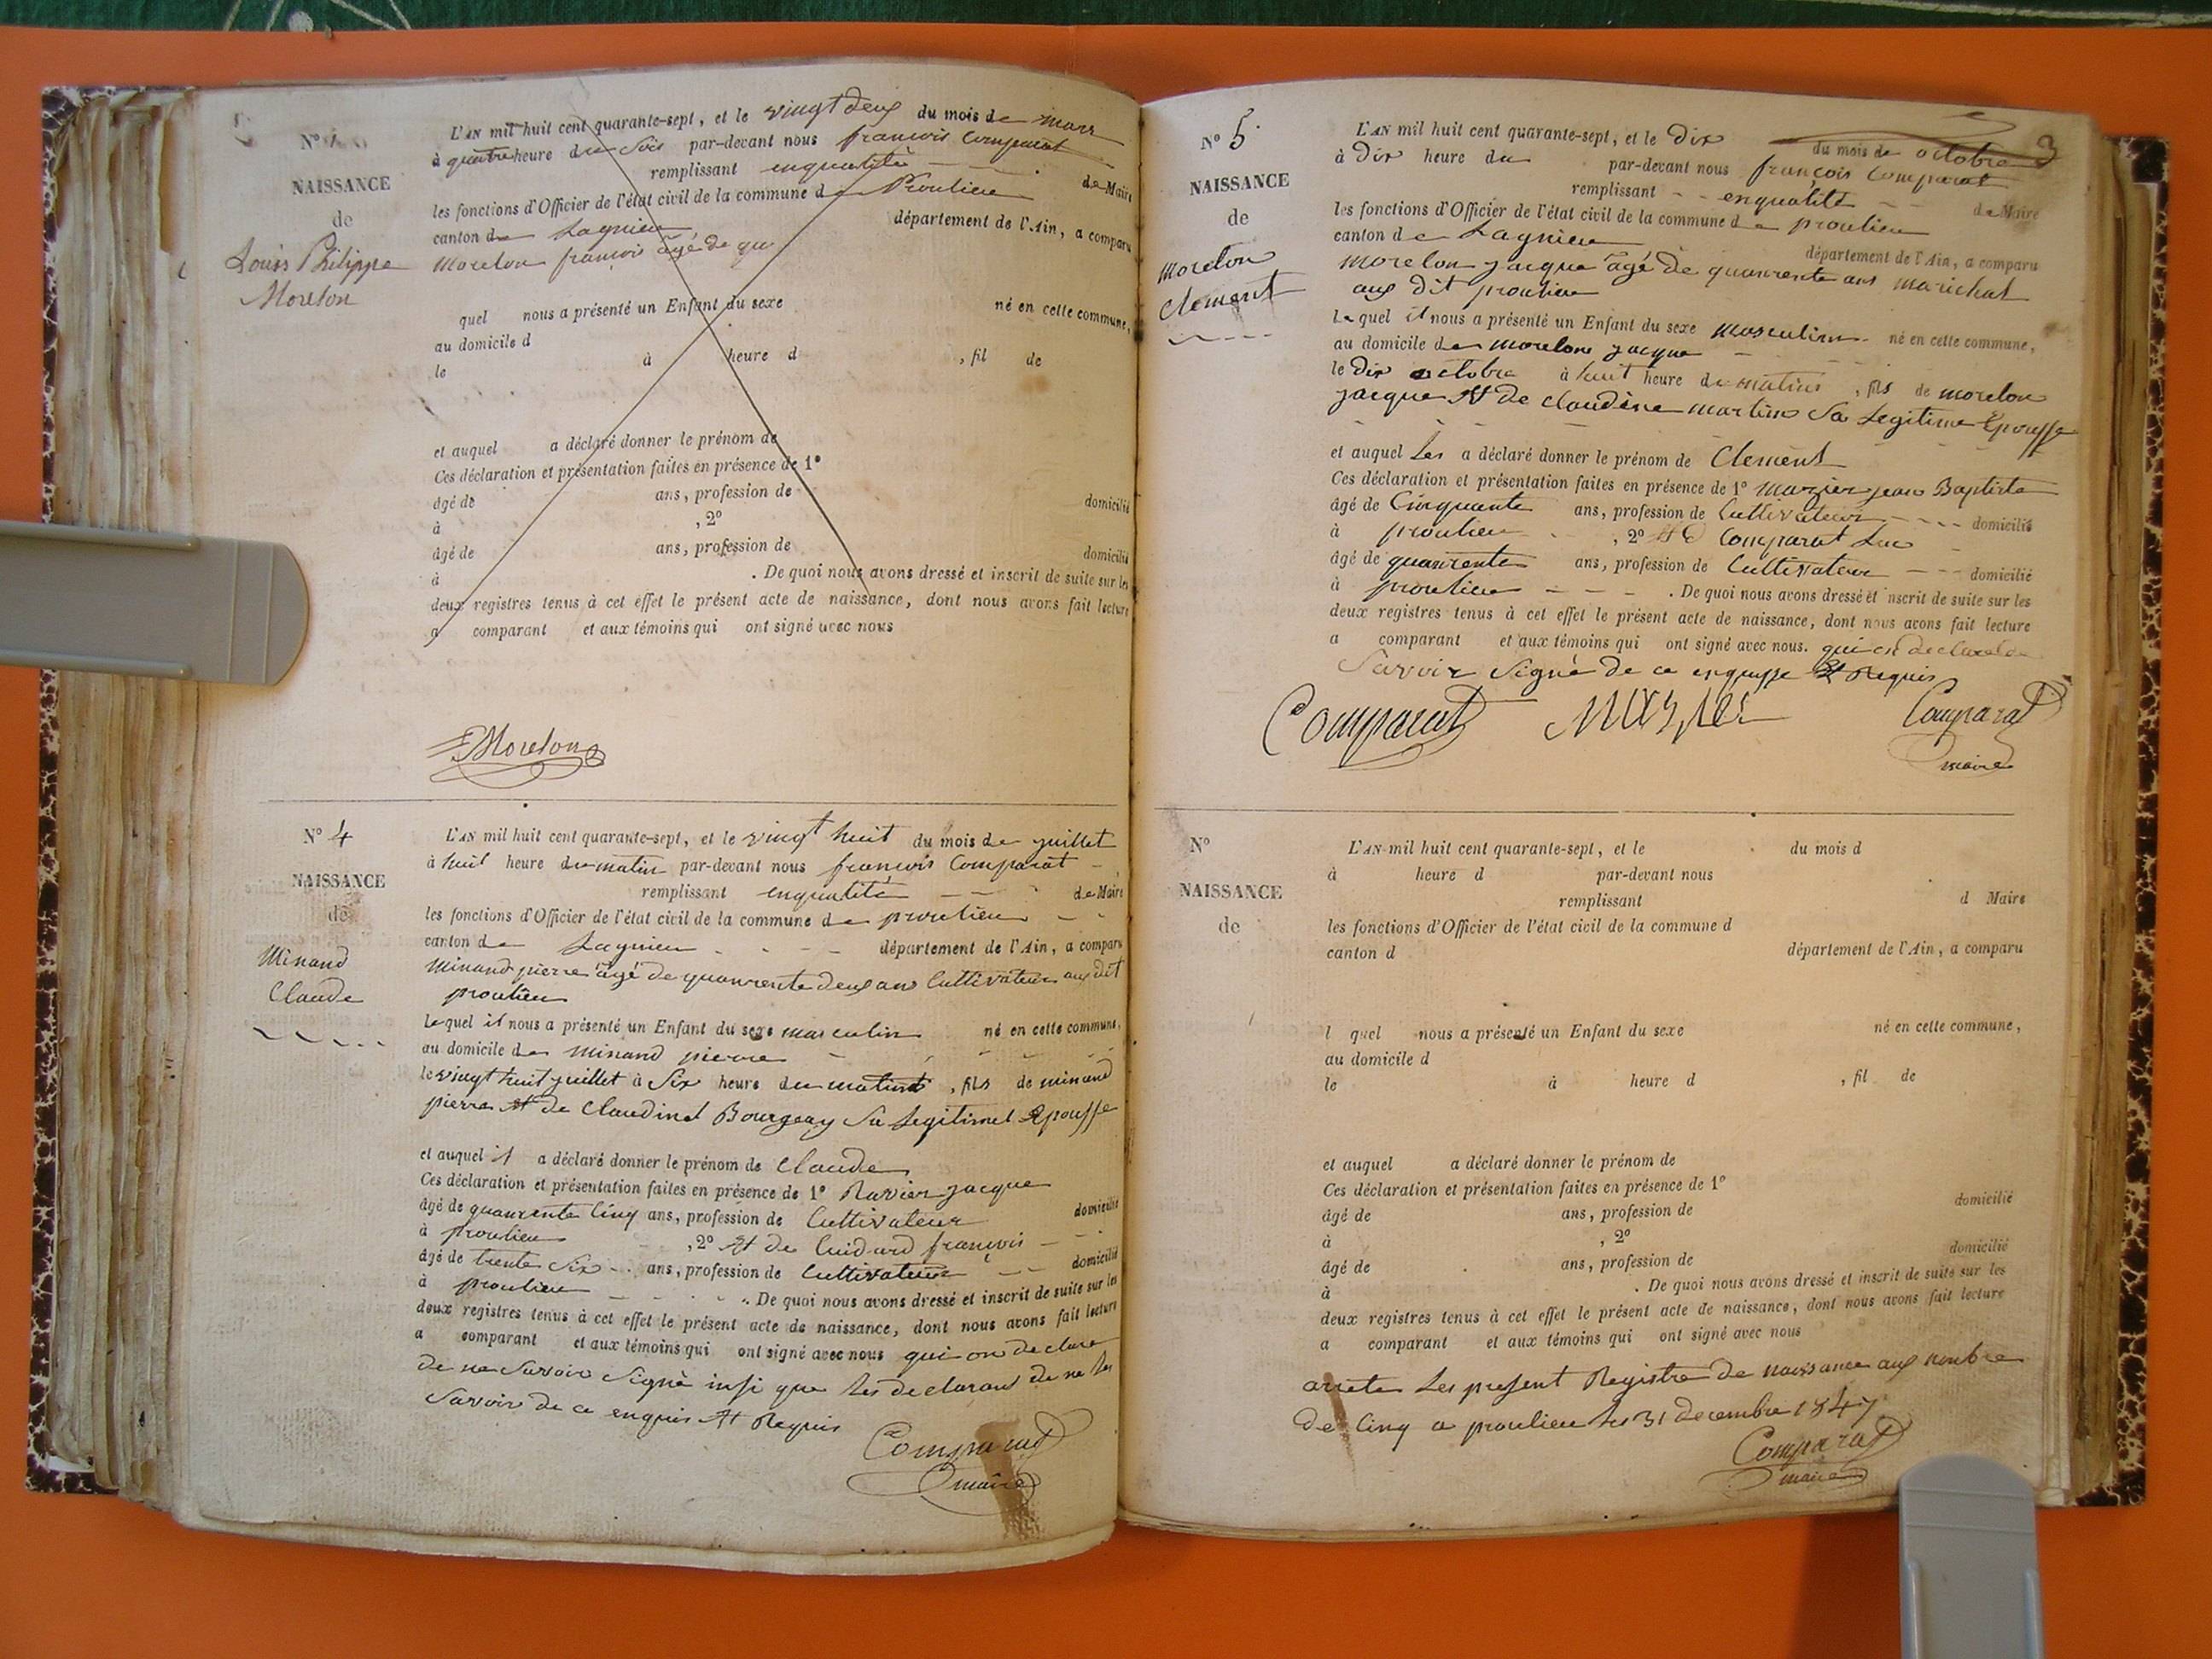 Nº
NAISSANCE
de
Louis Philippe
Morelon
L'AN mil huit cent quarante-sept, et le vingt deux du mois de mars
à quatre heure du soir par-devant nous francois Comparat
remplissant enqualité de Maire
les fonctions d'Officier de l'état civil de la commune de Proulieu
canton de Lagnieu département de l'Ain, a comparu
Morelon francois âgé de qu
quel nous a présenté un Enfant du sexe né en cette commune,
au domicile d
le à heure d , fil de
et auquel a déclaré donner le prénom de
Ces déclaration et présentation faites en présence de 1º
âgé de ans, profession de domicilié
à , 2º
âgé de ans, profession de domicilié
à . De quoi nous avons dressé et inscrit de suite sur les
deux registres tenus à cet effet le présent acte de naissance, dont nous avons fait lecture
a comparant et aux témoins qui ont signé avec nous
Morelon
Nº 4
NAISSANCE
de
Minand
Claude
L'AN mil huit cent quarante-sept, et le vingt huit du mois de juillet
à huit heure du matin par-devant nous francois Comparat
remplissant enqualité de Maire
les fonctions d'Officier de l'état civil de la commune de proulieu
canton de Lagnieu département de l'Ain, a comparu
Minand pierre âgé de quanrente deux ans Cultivateur aux dit
proulieu
lequel il nous a présenté un Enfant du sexe masculin né en cette commune,
au domicile de minand pierre
le vingt huit juillet à Six heure du matin , fils de minand
pierre et de Claudinet Bourgeay Sa Legitimet Epousse
et auquel il a déclaré donner le prénom de Claude
Ces déclaration et présentation faites en présence de 1º Ravier jacque
âgé de quanrente Cinq ans, profession de Cultivateur domicilié
à proulieu , 2º et de Cuidard francois
âgé de trente Six ans, profession de Cultivateur domicilié
à proulieu . De quoi nous avons dressé et inscrit de suite sur les
deux registres tenus à cet effet le présent acte de naissance, dont nous avons fait lecture
a comparant et aux témoins qui ont signé avec nous qui on declare
de ne Savoir Signé insi que les declarant de ne les
Savoir de ce enquis et Requis
Comparat
maire
3
Nº 5
NAISSANCE
de
morelon
Clement
L'AN mil huit cent quarante-sept, et le Dix du mois de octobre
à Dix heure du par-devant nous françois Comparat
remplissant enqualité de Maire
les fonctions d'Officier de l'état civil de la commune de proulieu
canton de Lagnieu département de l'Ain, a comparu
morelon jacque âgé de quanrente ans marichal
aux dit proulieu
lequel il nous a présenté un Enfant du sexe masculin né en cette commune,
au domicile de morelon jacque
le Dix octobre à huit heure du matin , fils de morelon
jacque et de Claudine martin Sa Legitime Epousse
et auquel Les a déclaré donner le prénom de Clement
Ces déclaration et présentation faites en présence de 1º mazier jean Baptiste
âgé de Cinquante ans, profession de Cultivateur domicilié
à proulieu , 2º Comparat Luc
âgé de quanrente ans, profession de Cultivateur domicilié
à proulieu . De quoi nous avons dressé et inscrit de suite sur les
deux registres tenus à cet effet le présent acte de naissance, dont nous avons fait lecture
a comparant et aux témoins qui ont signé avec nous.
Savoir Signé de ce et Requis
Comparat Mazier Comparat
maire
Nº
NAISSANCE
de
L'AN mil huit cent quarante-sept, et le du mois d
à heure d par-devant nous
remplissant d Maire
les fonctions d'Officier de l'état civil de la commune d
canton d département de l'Ain, a comparu
l quel nous a présenté un Enfant du sexe né en cette commune,
au domicile d
le à heure d , fil de
et auquel a déclaré donner le prénom de
Ces déclaration et présentation faites en présence de 1º
âgé de ans, profession de domicilié
à , 2º
âgé de ans, profession de domicilié
à . De quoi nous avons dressé et inscrit de suite sur les
deux registres tenus à cet effet le présent acte de naissance, dont nous avons fait lecture
a comparant et aux témoins qui ont signé avec nous
arrete Les present Registre de naissance aux nonbre
de Cinq a proulieu les 31 decembre 1847
Comparat
maire